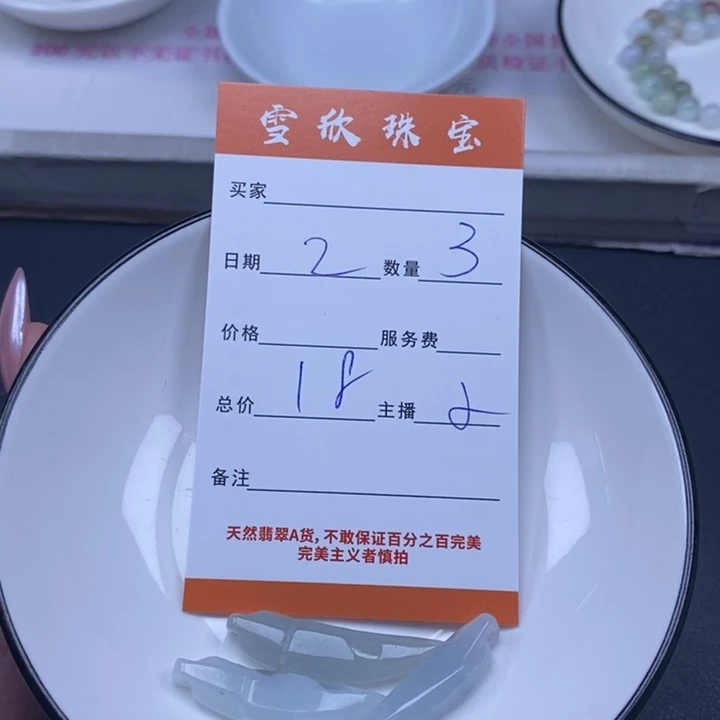 雪欣珠宝
买家
日期 2 数量 3
价格 服务费
总价 18 主播
备注
天然翡翠A货,不敢保证百分之百完美
完美主义者慎拍